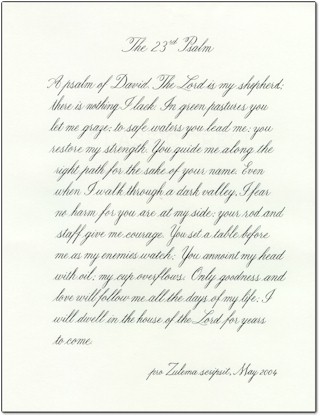 The 23rd Psalm
A psalm of David. The Lord is my shepherd;
there is nothing I lack. In green pastures you
let me graze; to safe waters you lead me; you
restore my strength. You guide me along the
right path for the sake of your name. Even
when I walk through a dark valley, I fear
no harm for you are at my side; your rod and
staff give me courage. You set a table before
me as my enemies watch; You annoint my head
with oil; my cup overflows. Only goodness and
love will follow me all the days of my life; I
will dwell in the house of the Lord for years
to come.
pro Zulema scripsit, May 2004